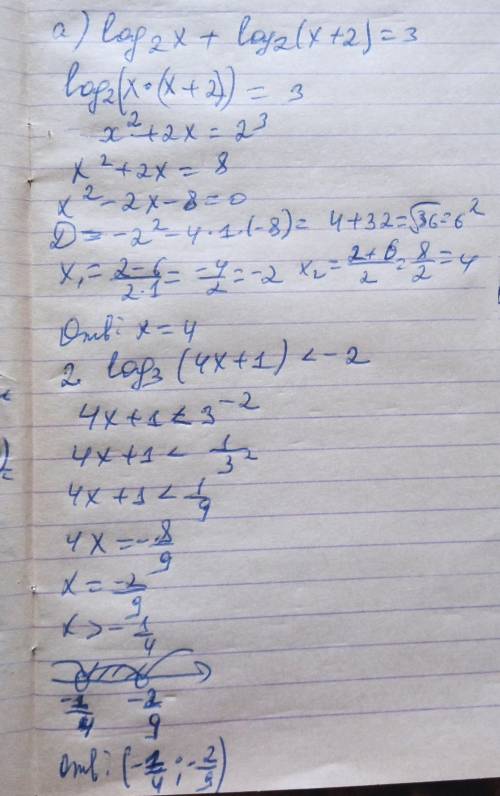 а) log₂x + log₂(x+2) = 3
log₂(x·(x+2)) = 3
x² + 2x = 2³
x² + 2x = 8
x² - 2x - 8 = 0
D = -2² - 4·1·(-8) = 4 + 32 = √36 = 6²
x₁ = (2-6)/(2·1) = -4/2 = -2 x₂ = (2+6)/2 = 8/2 = 4
Отв: x = 4
2. log₃(4x+1) < -2
4x+1 < 3⁻²
4x+1 < 1/3²
4x+1 < 1/9
4x = -8/9
x = -2/9
x > -1/4
-1/4 -2/9
Отв: (-1/4 ; -2/9)